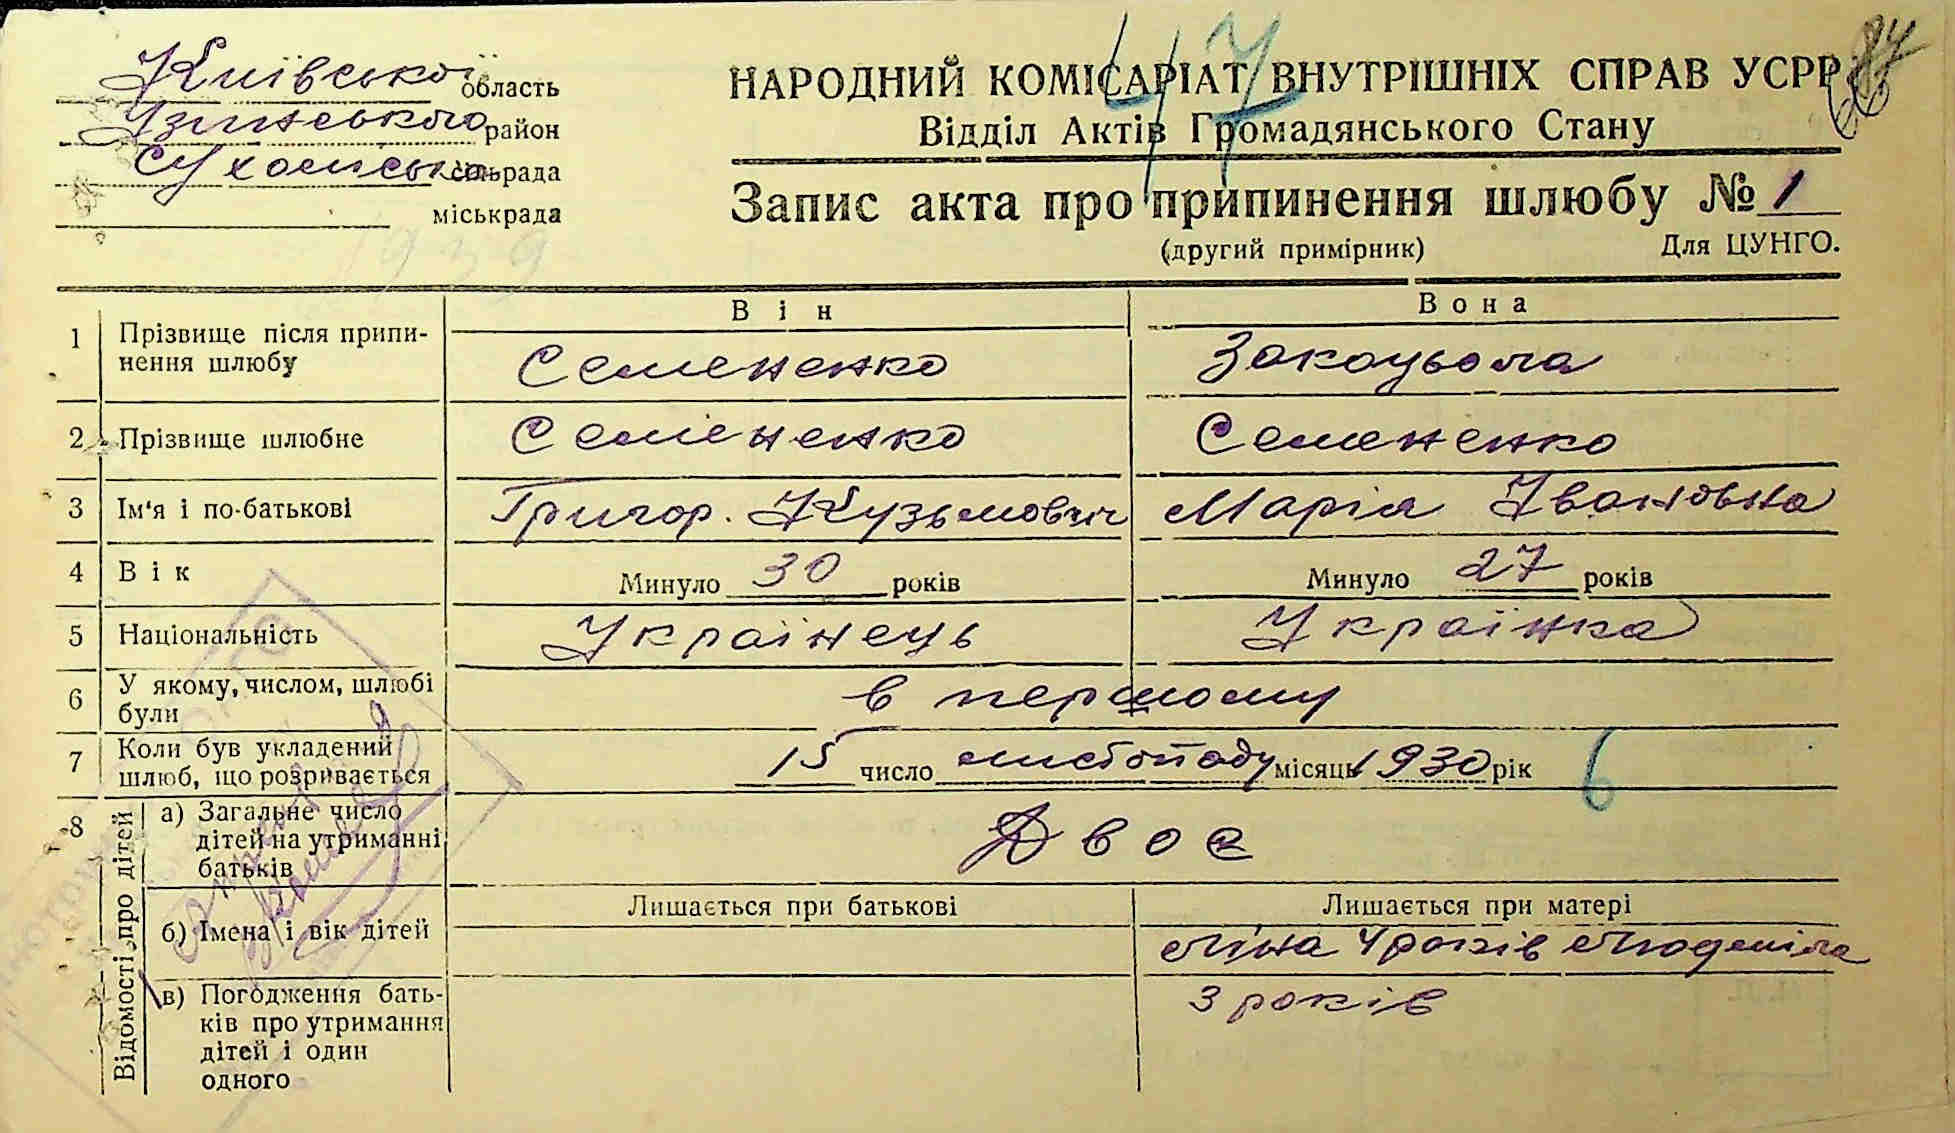 Київської область
Узинського район
Сухоліська сільрада
міськрада
47
НАРОДНИЙ КОМІСАРІАТ ВНУТРІШНІХ СПРАВ УСРР
Відділ Актів Громадянського Стану
Запис акта про припинення шлюбу № 1
(другий примірник) Для ЦУНГО.
1939
Він Вона
1 Прізвище після припи-
нення шлюбу Семененко Закоцьола
2 Прізвище шлюбне Семененко Семененко
3 Ім'я і по-батькові Григор. Кузьмович Марія Івановна
4 Вік Минуло 30 років Минуло 27 років
5 Національність Українець Українка
6 У якому, числом, шлюбі
були в першому
7 Коли був укладений
шлюб, що розривається 15 число листопаду місяць 1930 рік 6
8 Відомості про дітей
а) Загальне число
дітей на утриманні
батьків Двоє
Лишається при батькові Лишається при матері
б) Імена і вік дітей Ліна 4 років Людміла
3 років
в) Погодження бать-
ків про утримання
дітей і один
одного